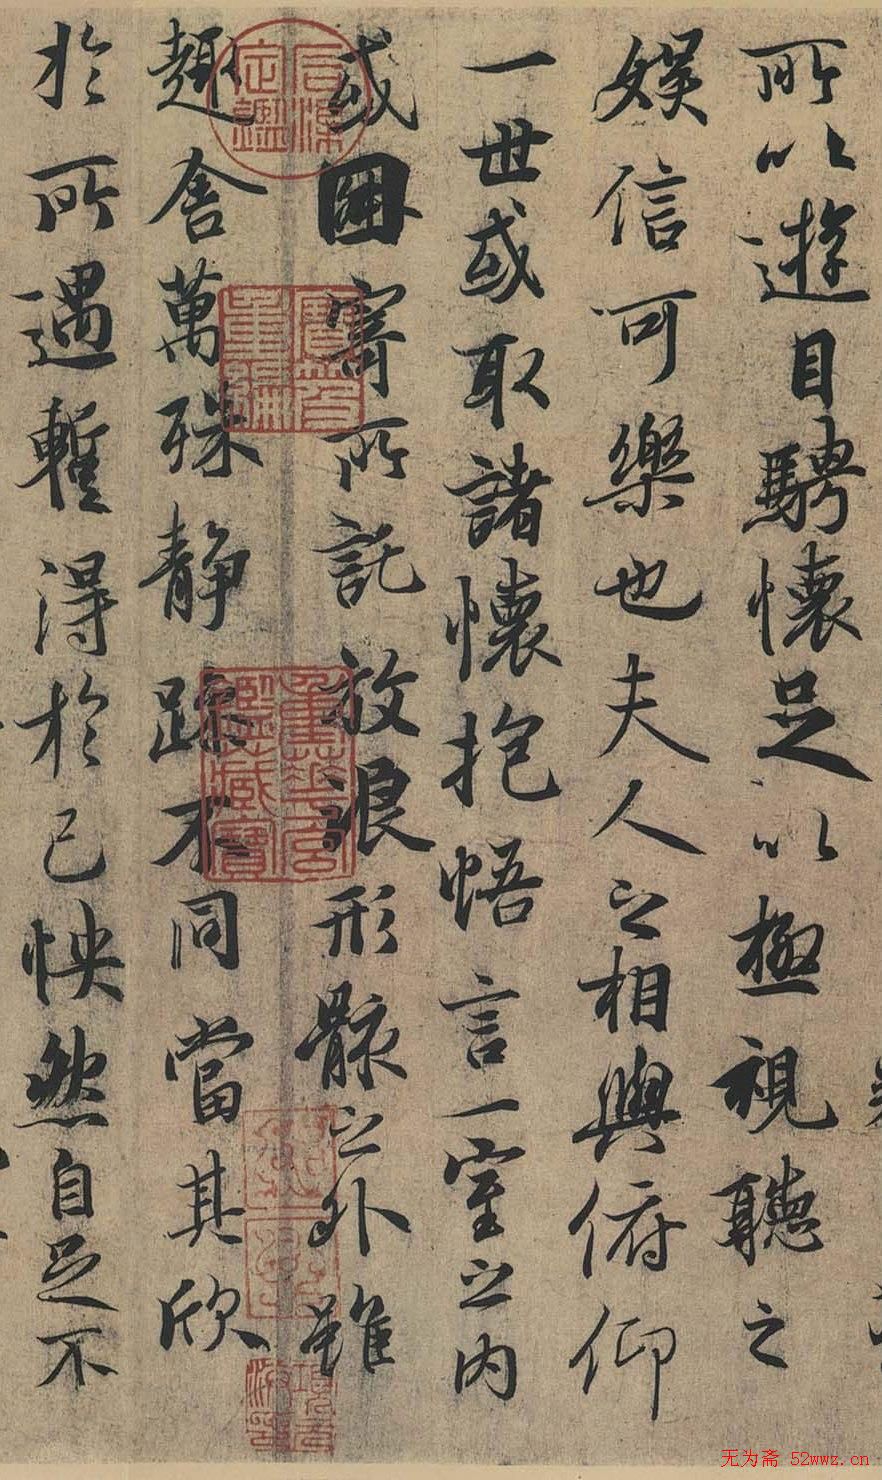 所以遊目騁懷足以極視聽之
娛信可樂也夫人之相與俯仰
一世或取諸懷抱悟言一室之內
或因寄所託放浪形骸之外雖
趣舍萬殊静躁不同當其欣
於所遇暫得於己怏然自足不
石渠定鑑
寶笈重編
無為斋 52wwz.cn